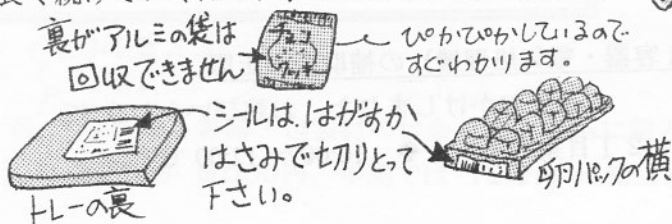 裏がアルミの袋は
回収できません
チョコ
クッキー
ぴかぴかしているので
すぐわかります。
シールは、はがすか
はさみで切りとって
下さい。
トレーの裏
卵パックの横